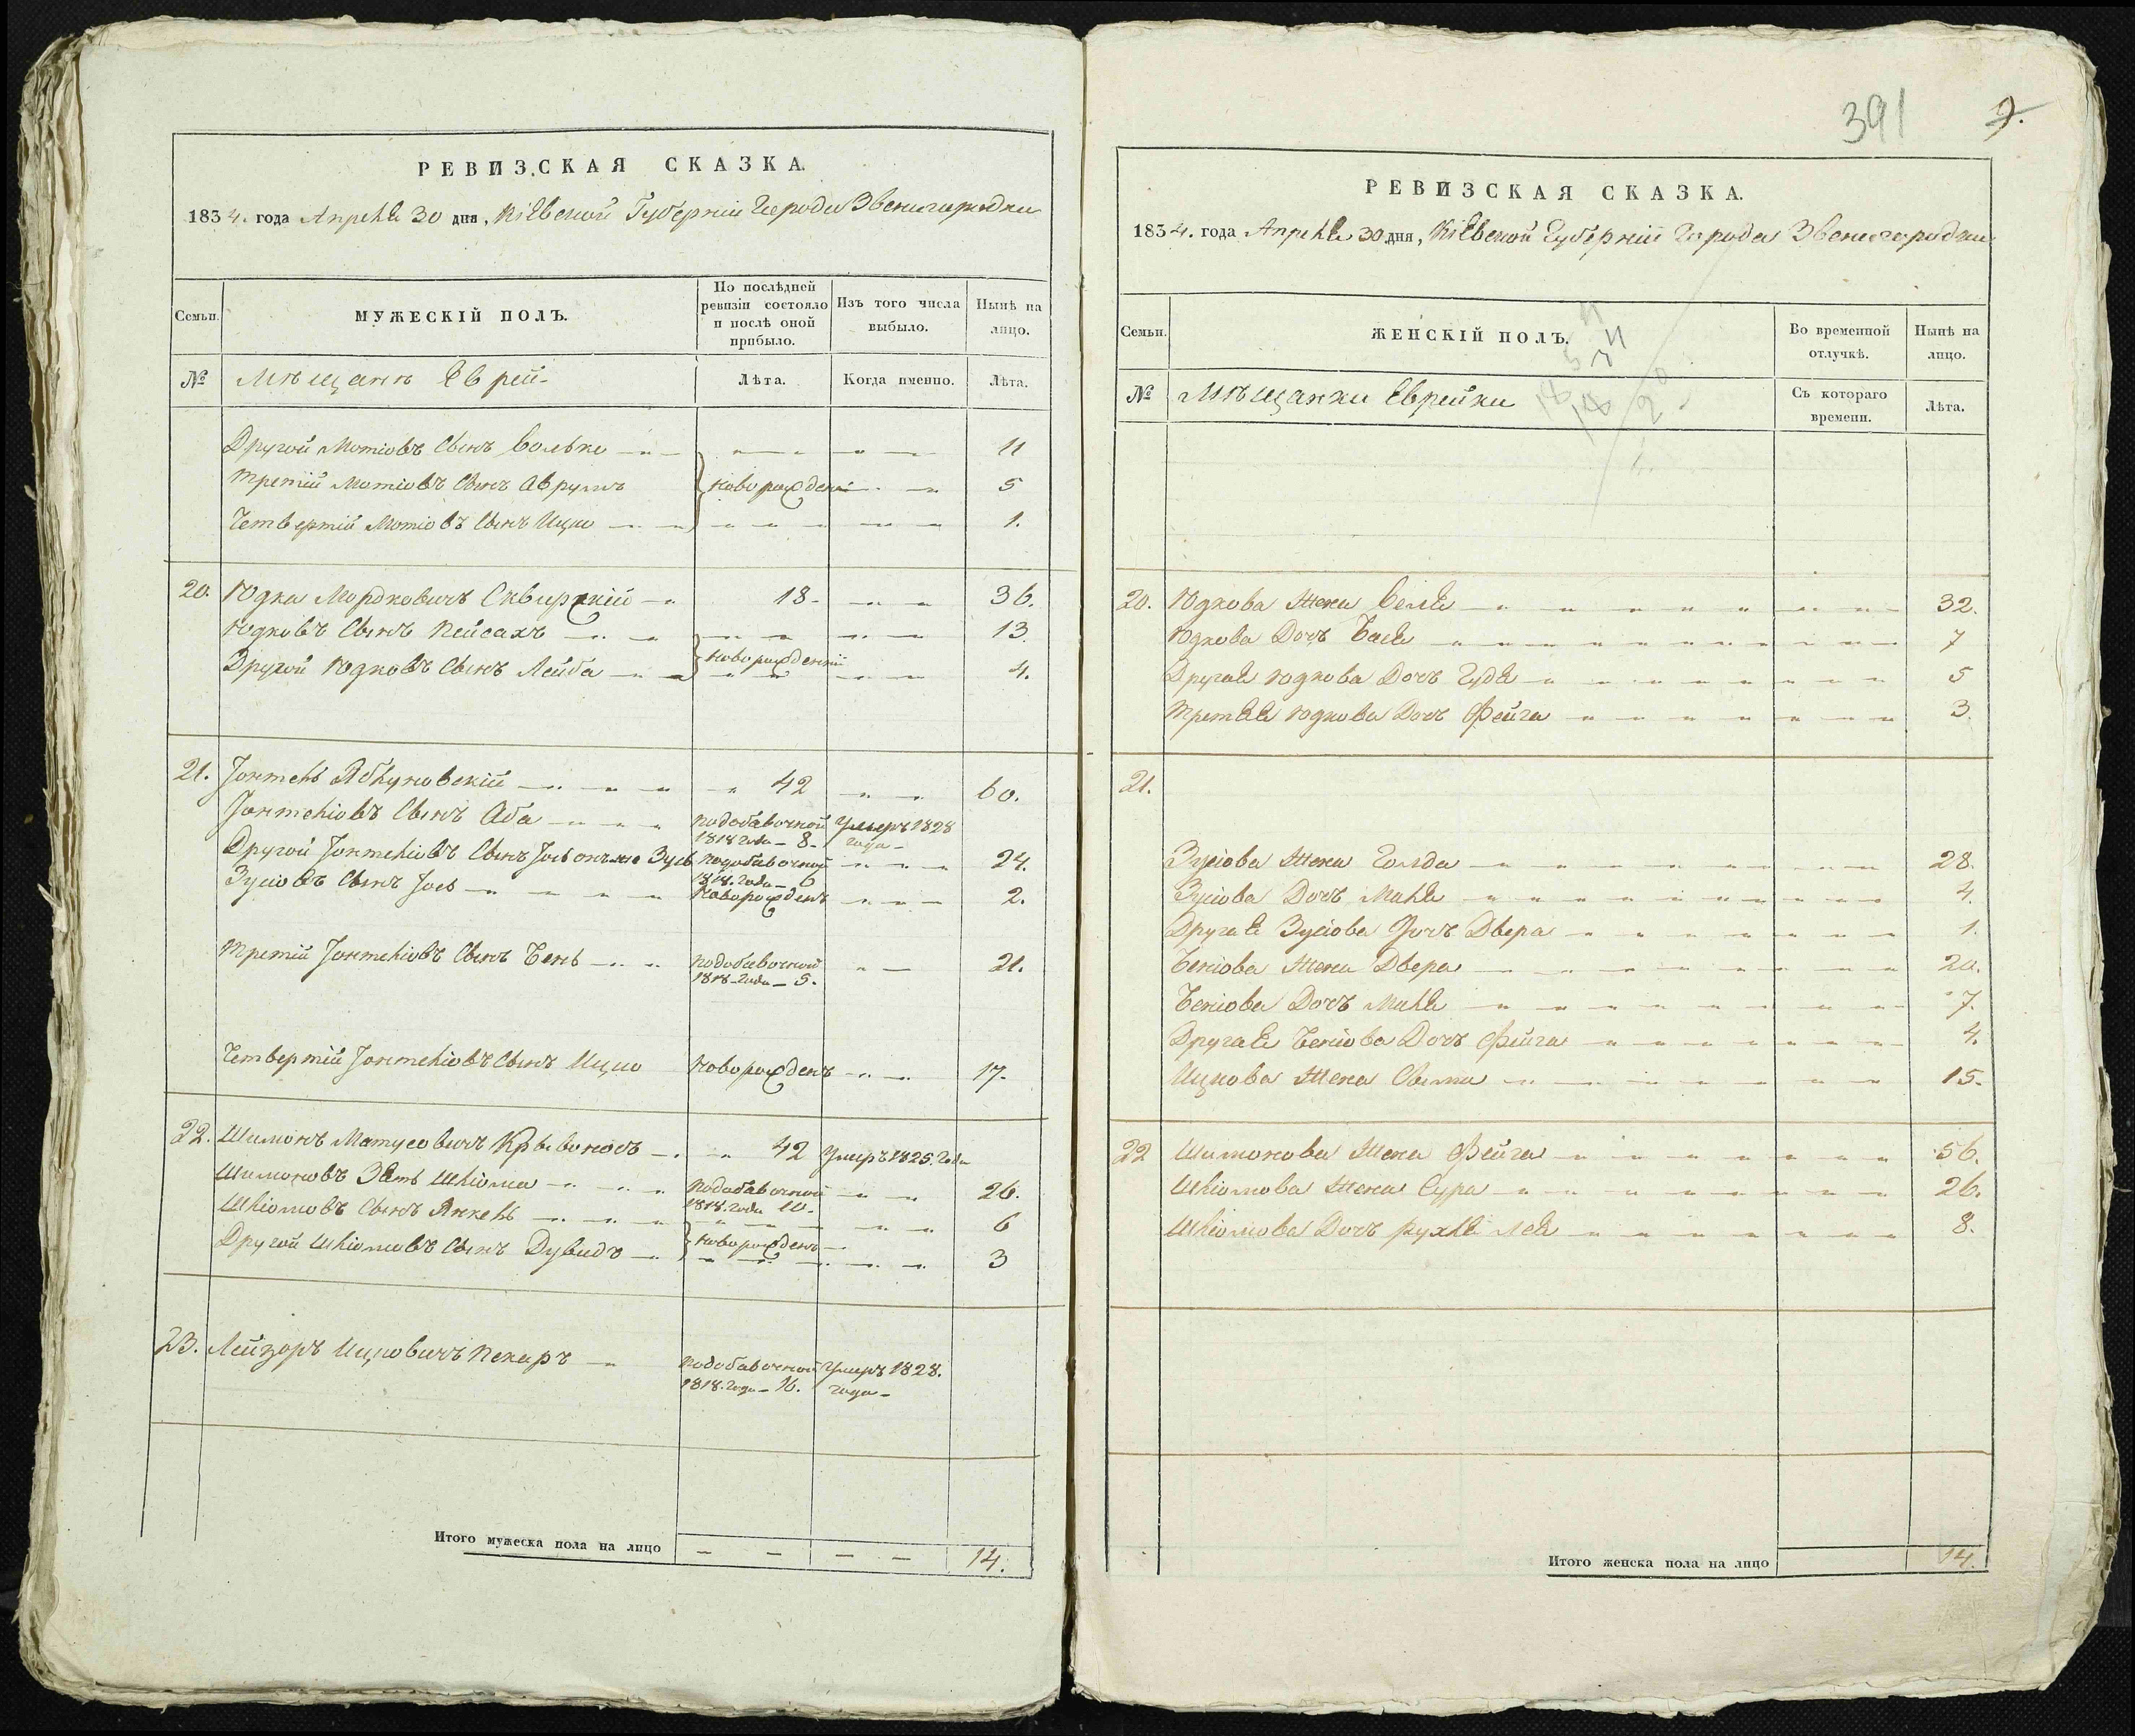 РЕВИЗСКАЯ СКАЗКА.
1834. года Апреля 30 дня, Кіевской Губерніи Города Звенигородки
Семьи.
МУЖЕСКІЙ ПОЛЪ.
По послѣдней ревизіи состояло и послѣ оной прибыло.
Изъ того числа выбыло.
Нынѣ на лицо.
№
Мѣщанъ Еврей-
Лѣта.
Когда именно.
Лѣта.
Другой Мотіовъ Сынъ Волько 11
Третій Мотіовъ Сынъ Аврумъ Новорожденні 5
Четвертій Мотіовъ Сынъ Ицко 1.
20. Юдка Мордковичъ Сквирскій 18- 36.
Юдковъ Сынъ Пейсахъ 13.
Новорожденніи
Другой Юдковъ Сынъ Лейба 4.
21. Іонтель Яблуновскій 42 60.
Іонтеліовъ Сынъ Аба подобавочной 1818 года - 8. Умеръ 1828 года-
Другой Іонтеліовъ Сынъ Іось онъже Зусь подобавочной 1818. года - 6 24.
Зусіовъ Сынъ Іось Новорожденъ 2.
Третій Іонтеліовъ Сынъ Бень подобавочной 1818-года - 5. 21.
Четвертій Іонтеліовъ Сынъ Ицко Новорожденъ 17.
22. Шимонъ Матусовичъ Крывоносъ 42 Умеръ 1825. года
Шимоновъ Зять Шліома подобавочной 1818. года 10- 26.
Шліомовъ Сынъ Янкель 6
Новорожденъ
Другой Шліомовъ Сынъ Дувидъ 3
23. Лейзоръ Ицковичъ Пекаръ подобавочной 1818. года - 16. Умеръ 1828. года-
Итого мужеска пола на лицо 14.
391
9.
РЕВИЗСКАЯ СКАЗКА.
1834. года Апреля 30 дня, Кіевской Губерніи Города Звенигородки
Семьи.
ЖЕНСКІЙ ПОЛЪ.
Во временной отлучкѣ.
Нынѣ на лицо.
№
Мѣщанки Еврейки
Съ котораго времени.
Лѣта.
20. Юдкова Жена Бейля 32.
Юдкова Дочъ Бася 7
Другая Юдкова Дочъ Гудя 5
Третяя Юдкова Дочъ Фейга 3.
21.
Зусіова Жена Гольда 28.
Зусіова Дочъ Маля 4.
Другая Зусіова Дочъ Двера 1.
Беніова Жена Двера 20.
Беніова Дочъ Маля 7.
Другая Беніова Дочъ Фейга 4.
Ицкова Жена 15.
22 Шимонова Жена Фейга 56.
Шліомова Жена Сура 26.
Шліомова Дочъ Рухля Лея 8.
Итого женска пола на лицо 14.